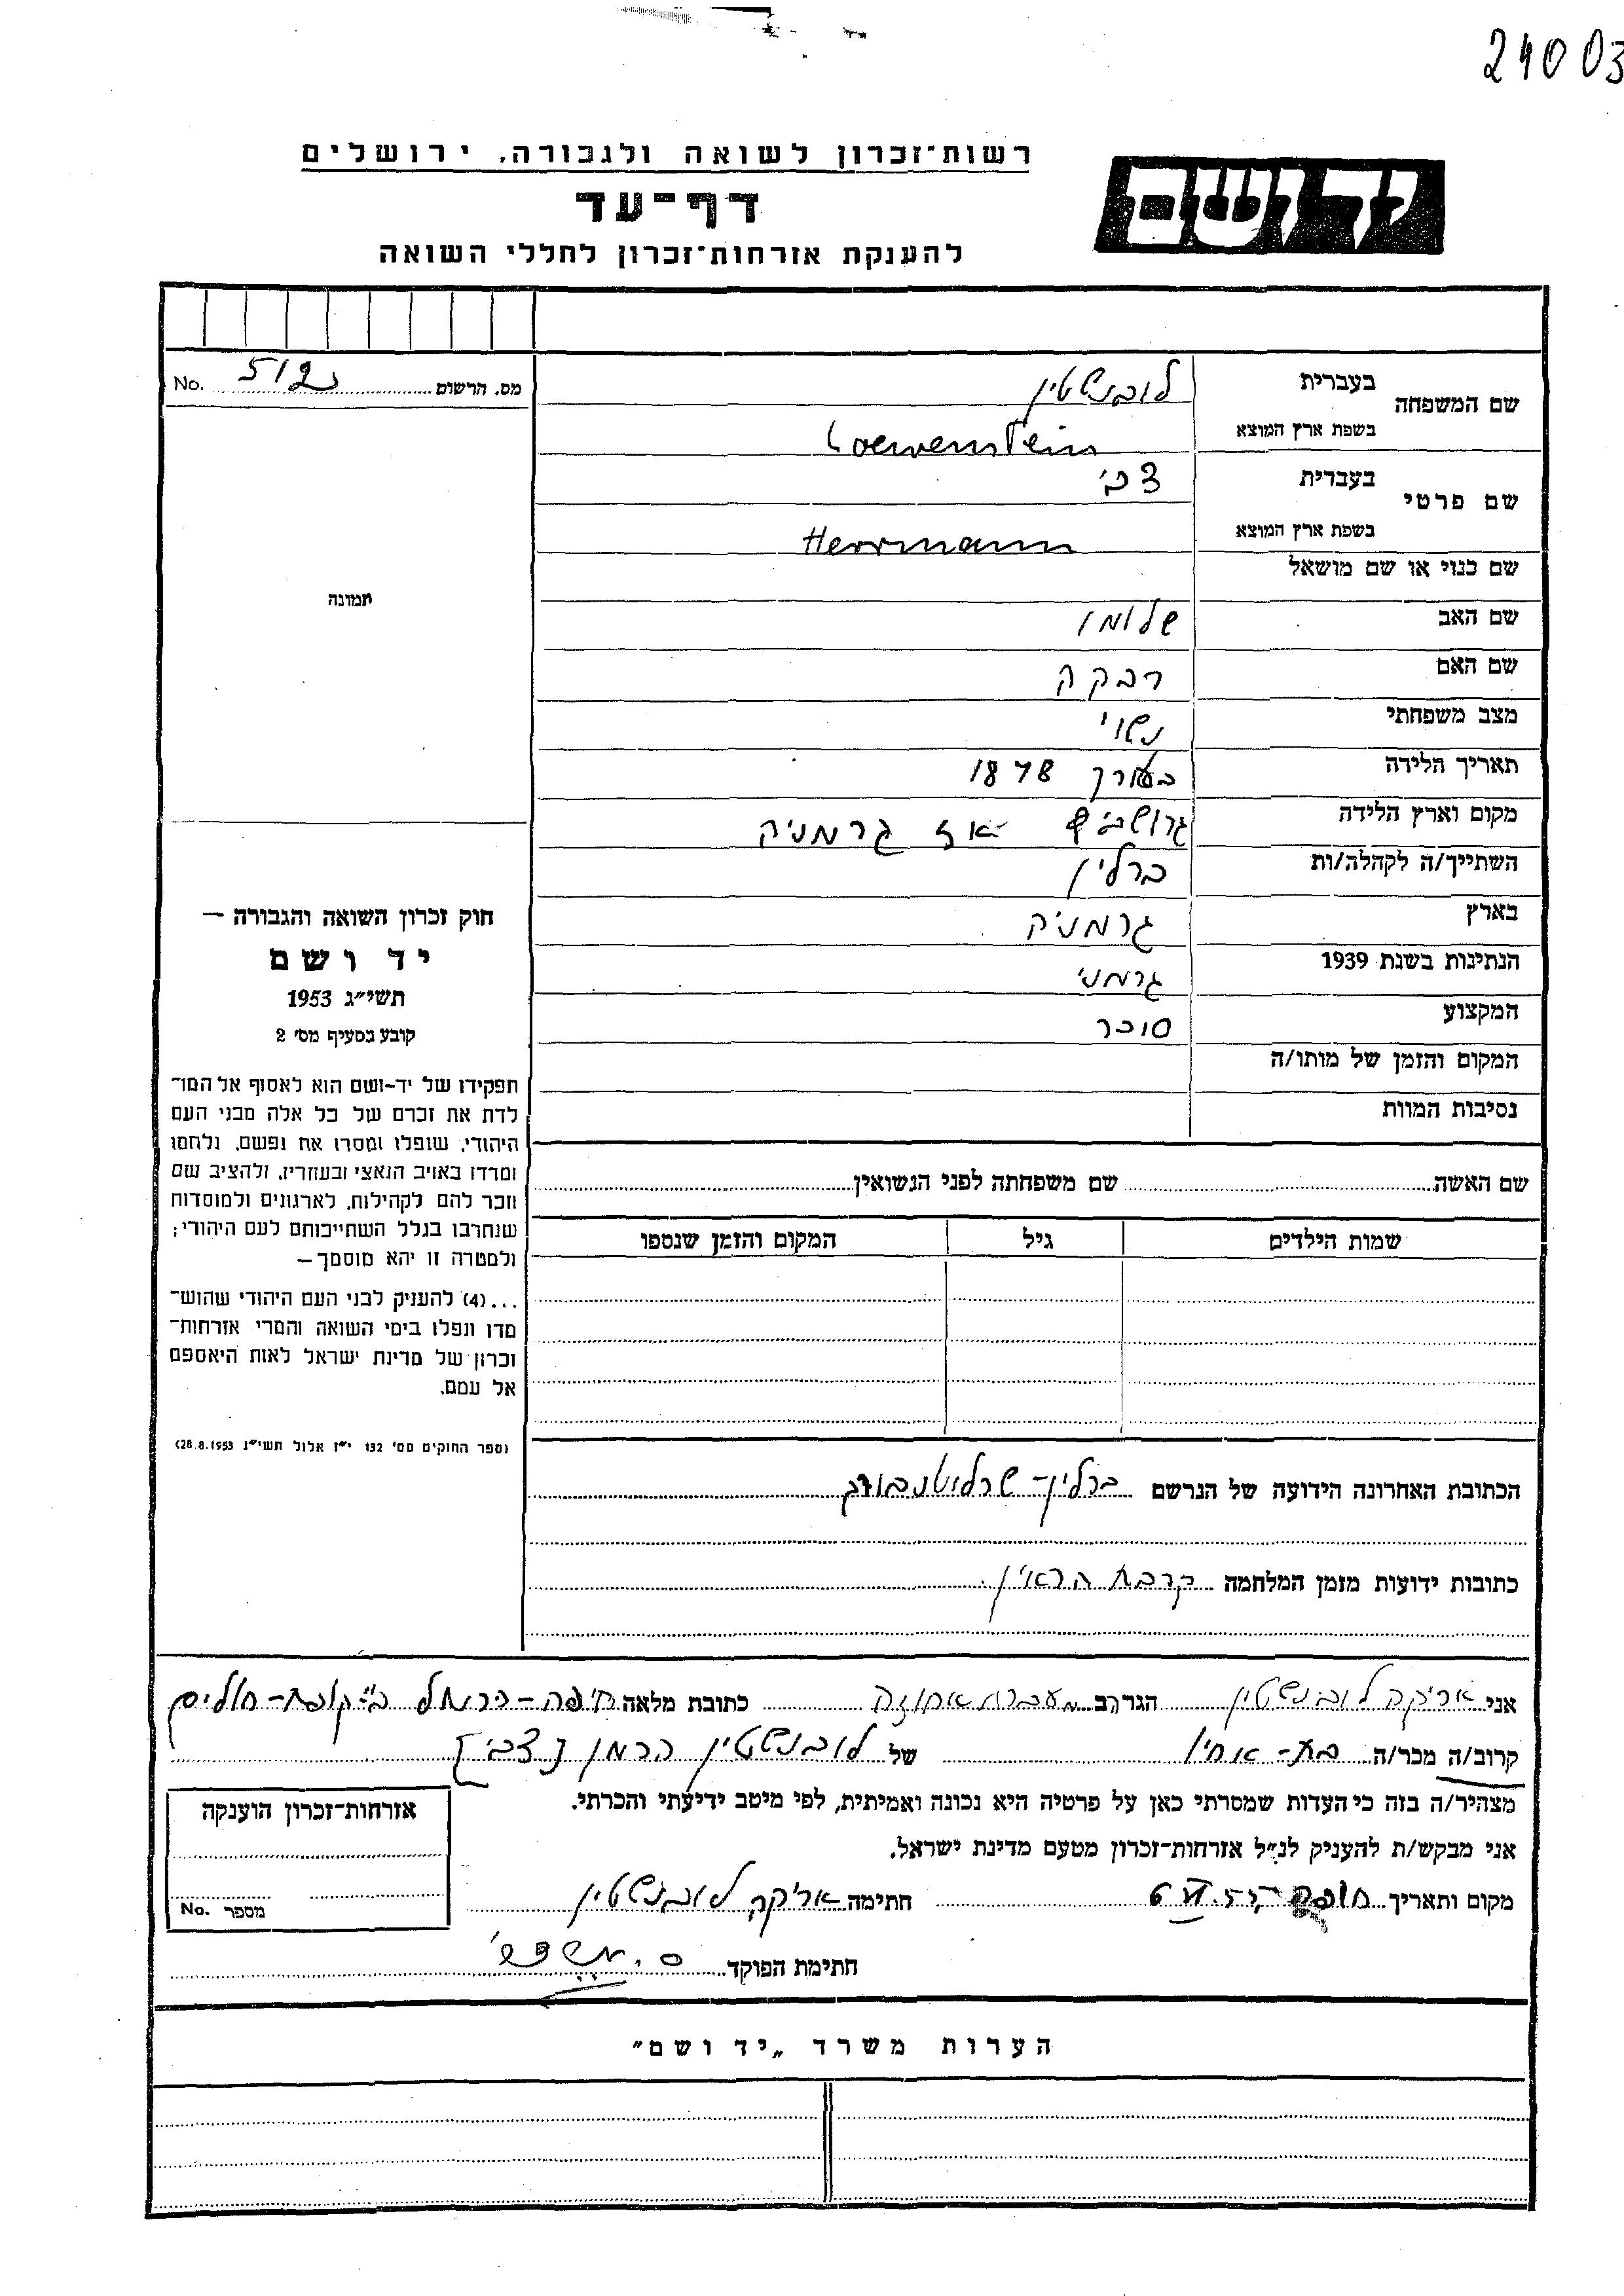 24003
רשות־זכרון לשואה ולגבורה, ירושלים
יד ושם
דף־עד
להענקת אזרחות־זכרון לחללי השואה
מס. הרשום 512 No.
שם המשפחה בעברית לובנשטין
בשפת ארץ המוצא Loewenstein
שם פרטי בעברית צבי
בשפת ארץ המוצא Herrmann
שם כנוי או שם מושאל
שם האב שלומו
שם האם רבקה
מצב משפחתי נשוי
תאריך הלידה בערך 1878
מקום וארץ הלידה אז גרמניה
השתייך/ה לקהלה/ות ברלין
בארץ גרמניה
הנתינות בשנת 1939 גרמני
המקצוע סוכר
המקום והזמן של מותו/ה
נסיבות המוות
תמונה
חוק זכרון השואה והגבורה —
יד ושם
תשי״ג 1953
קובע בסעיף מס׳ 2
תפקידו של יד-ושם הוא לאסוף אל המו־
לדת את זכרם של כל אלה מבני העם
היהודי, שנפלו ומסרו את נפשם, נלחמו
ומרדו באויב הנאצי ובעוזריו, ולהציב שם
וזכר להם לקהילות, לארגונים ולמוסדות
שנחרבו בגלל השתייכותם לעם היהודי;
ולמטרה זו יהא מוסמך—
...(4) להעניק לבני העם היהודי שהוש־
מדו ונפלו בימי השואה והמרי אזרחות־
זכרון של מדינת ישראל לאות היאספם
אל עמם.
(ספר החוקים מס׳ 132 י״ז אלול תשי״ג 28.8.1953)
שם האשה שם משפחתה לפני הנשואין
שמות הילדים גיל המקום והזמן שנספו
הכתובת האחרונה הידועה של הנרשם ברלין-שרלוטנבורג
כתובות ידועות מזמן המלחמה קרבת הראין
אני אריקה לובנשטין הגר ב מעברת אחוזה כתובת מלאה חיפה-כרמל בי״ קופת-חולים
קרוב/ה מכר/ה בת-אחיו של לובנשטין הרמן [צבי]
מצהיר/ה בזה כי העדות שמסרתי כאן על פרטיה היא נכונה ואמיתית, לפי מיטב ידיעתי והכרתי.
אני מבקש/ת להעניק לנ״ל אזרחות־זכרון מטעם מדינת ישראל.
מקום ותאריך חתימה אריקה לובנשטין
חתימת הפוקד
אזרחות־זכרון הוענקה
מספר No.
הערות משרד „יד ושם״